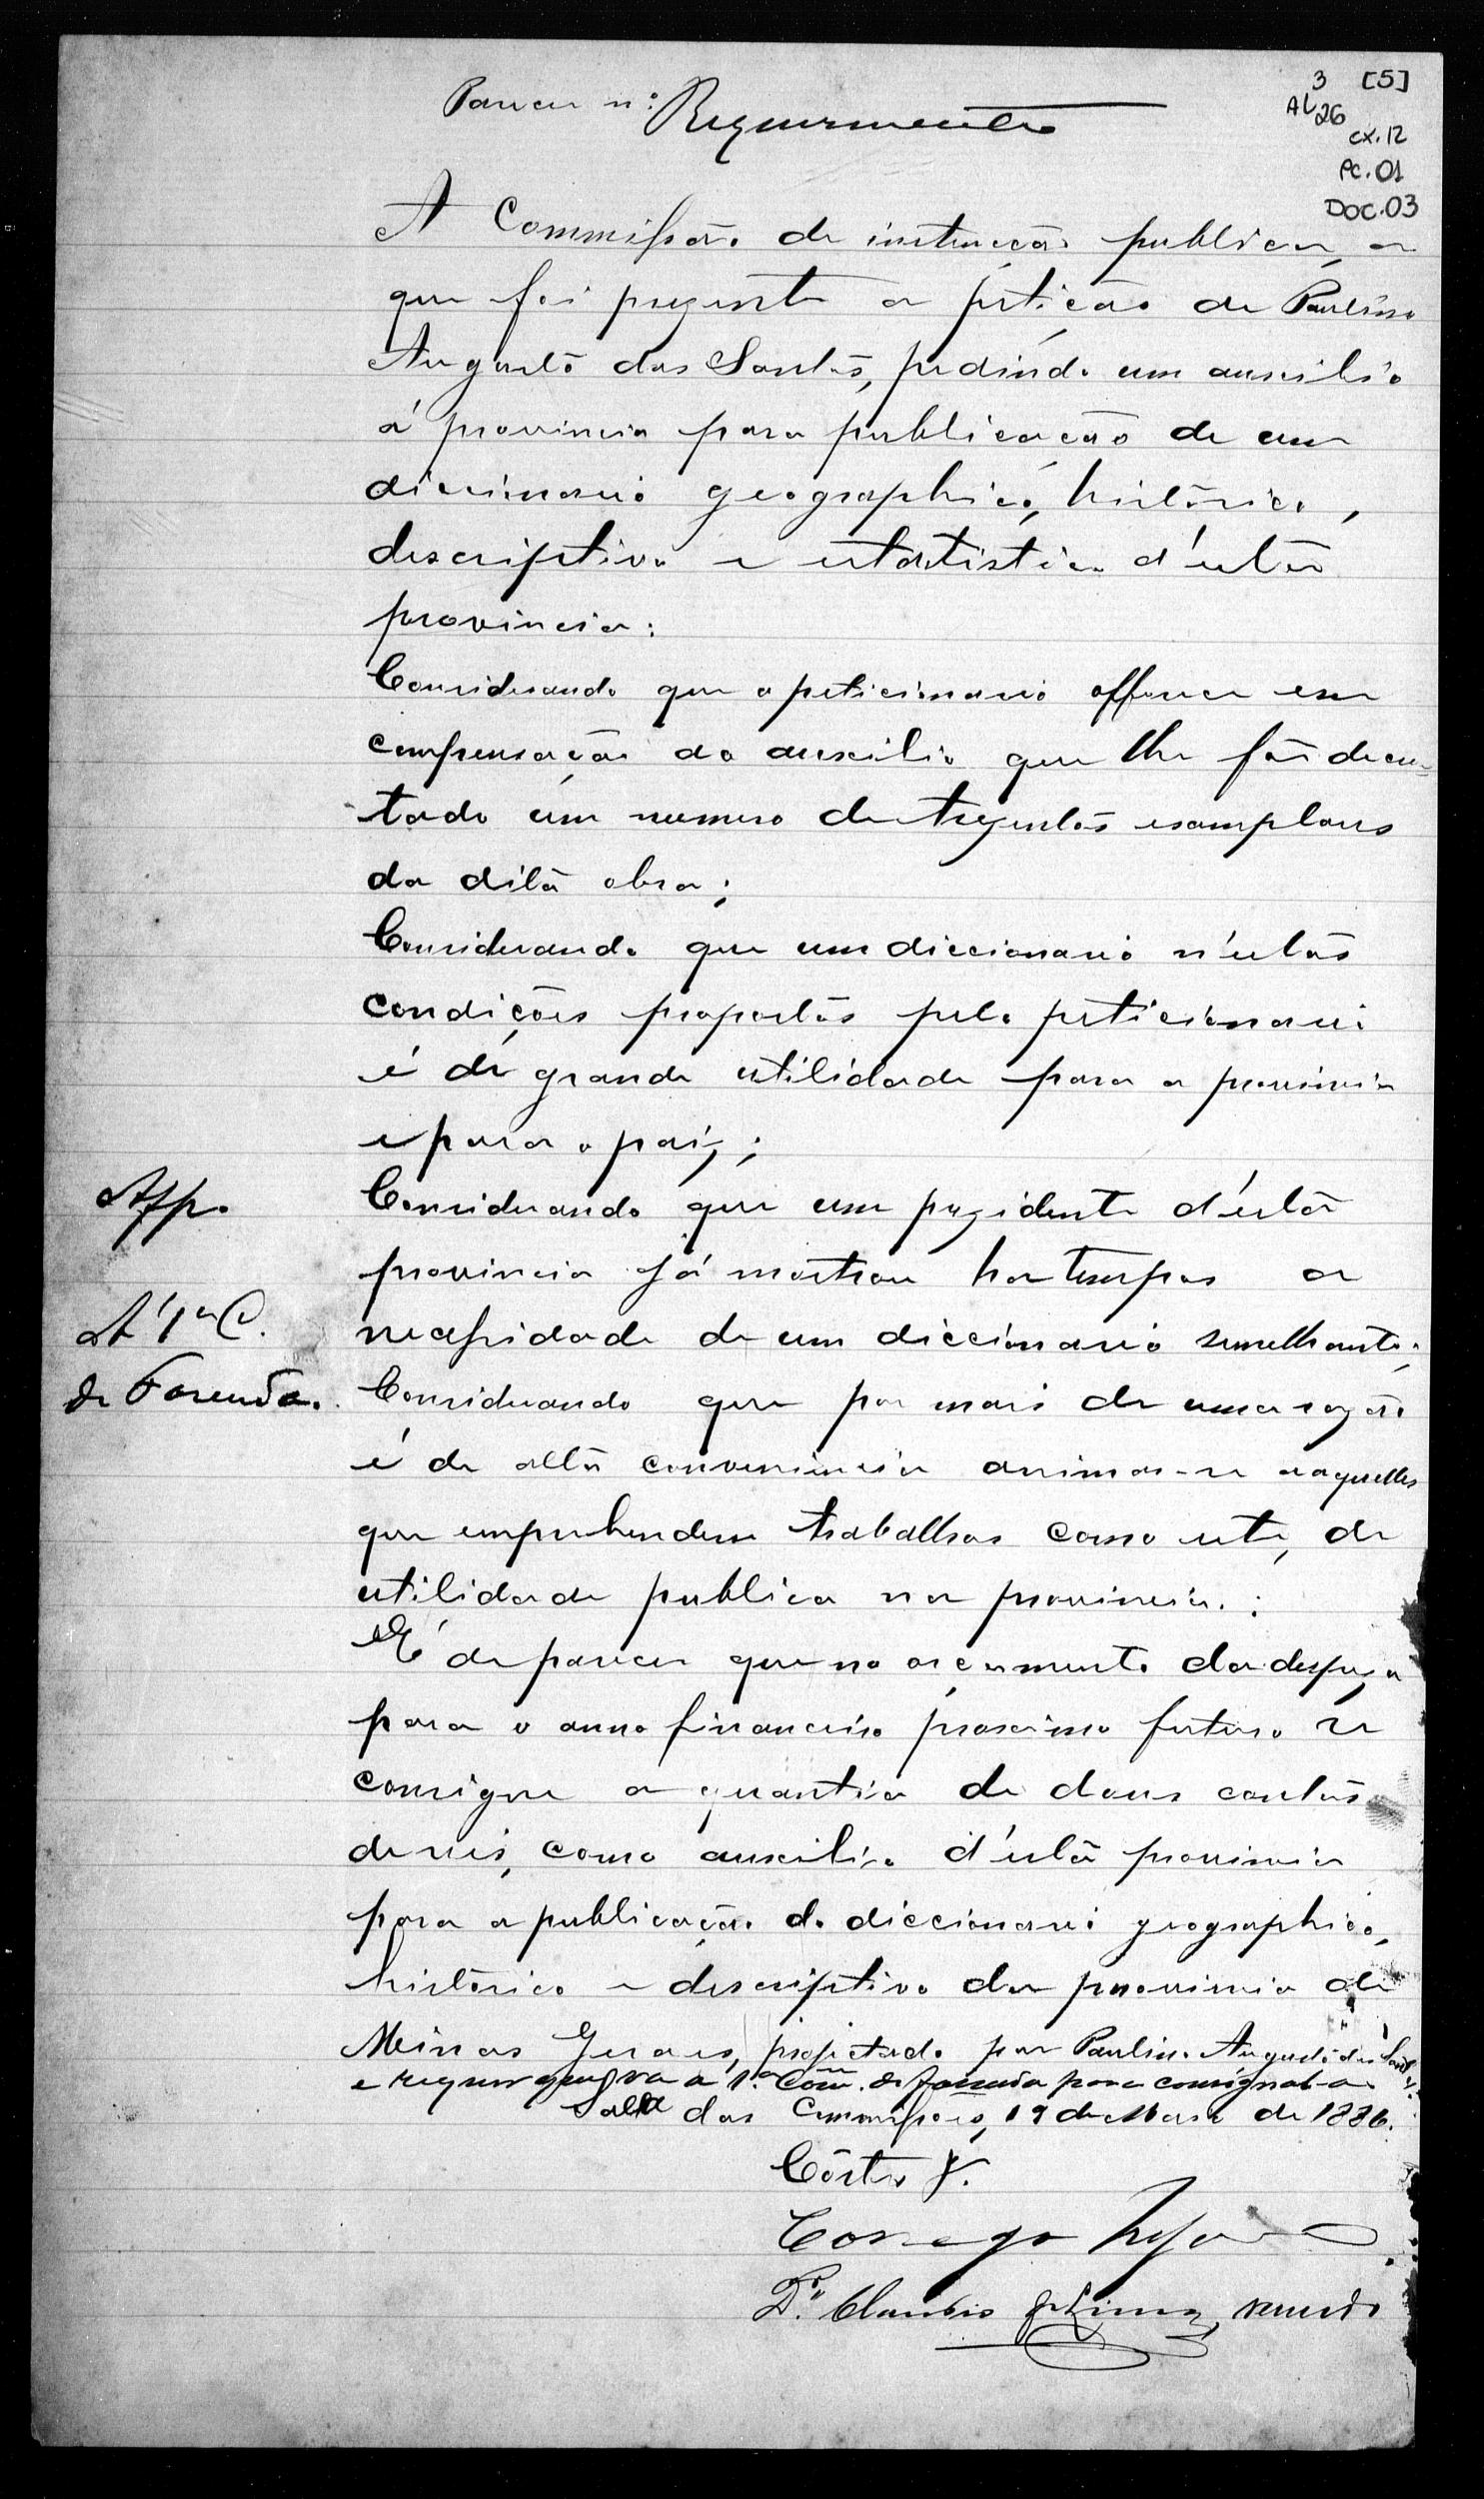 3 [5]
AL 26
cx. 12
Pc. 01
DOC. 03
Parecer n.º Requerimento
A Commissão de instrucção publica, a
que foi prezente a petição de Paulino
Augusto dos Santos, pedindo um auxilio
á provincia para publicação de um
diccionario geographico, historico,
descriptivo e estatistico d'esta
provincia:
Considerando que o peticionario offerece em
compensação do auxilio que lhe fôr decre-
tado um numero de trezentos exemplares
da dita obra;
Considerando que um diccionario n'estas
condições propostas pelo peticionario
é de grande utilidade para a provincia
e para o paiz;
Considerando que um prezidente d'esta
provincia já mostrou ha tempos a
necessidade de um diccionario semelhante;
Considerando que por mais de uma razão
é de alta conveniencia animar-se aaquelles
que emprehendem trabalhos como este, de
utilidade publica na provincia:
É de parecer que no orçamento da despeza
para o anno financeiro proximo futuro se
consigne a quantia de dous contos
de reis, como auxilio d'esta provincia
para a publicação do diccionario geographico,
historico e descriptivo da provincia de
Minas Geraes, projectado por Paulino Augusto dos Santos,
e requer que vá a 1.ª Com. de fazenda para consignal-a
Salla das Commissões, 19 de Maio de 1886.
Côrtes J.
Conego
Dr. Claudio de Lima, vencido
App.
Á 1ª C.
de Fazenda.